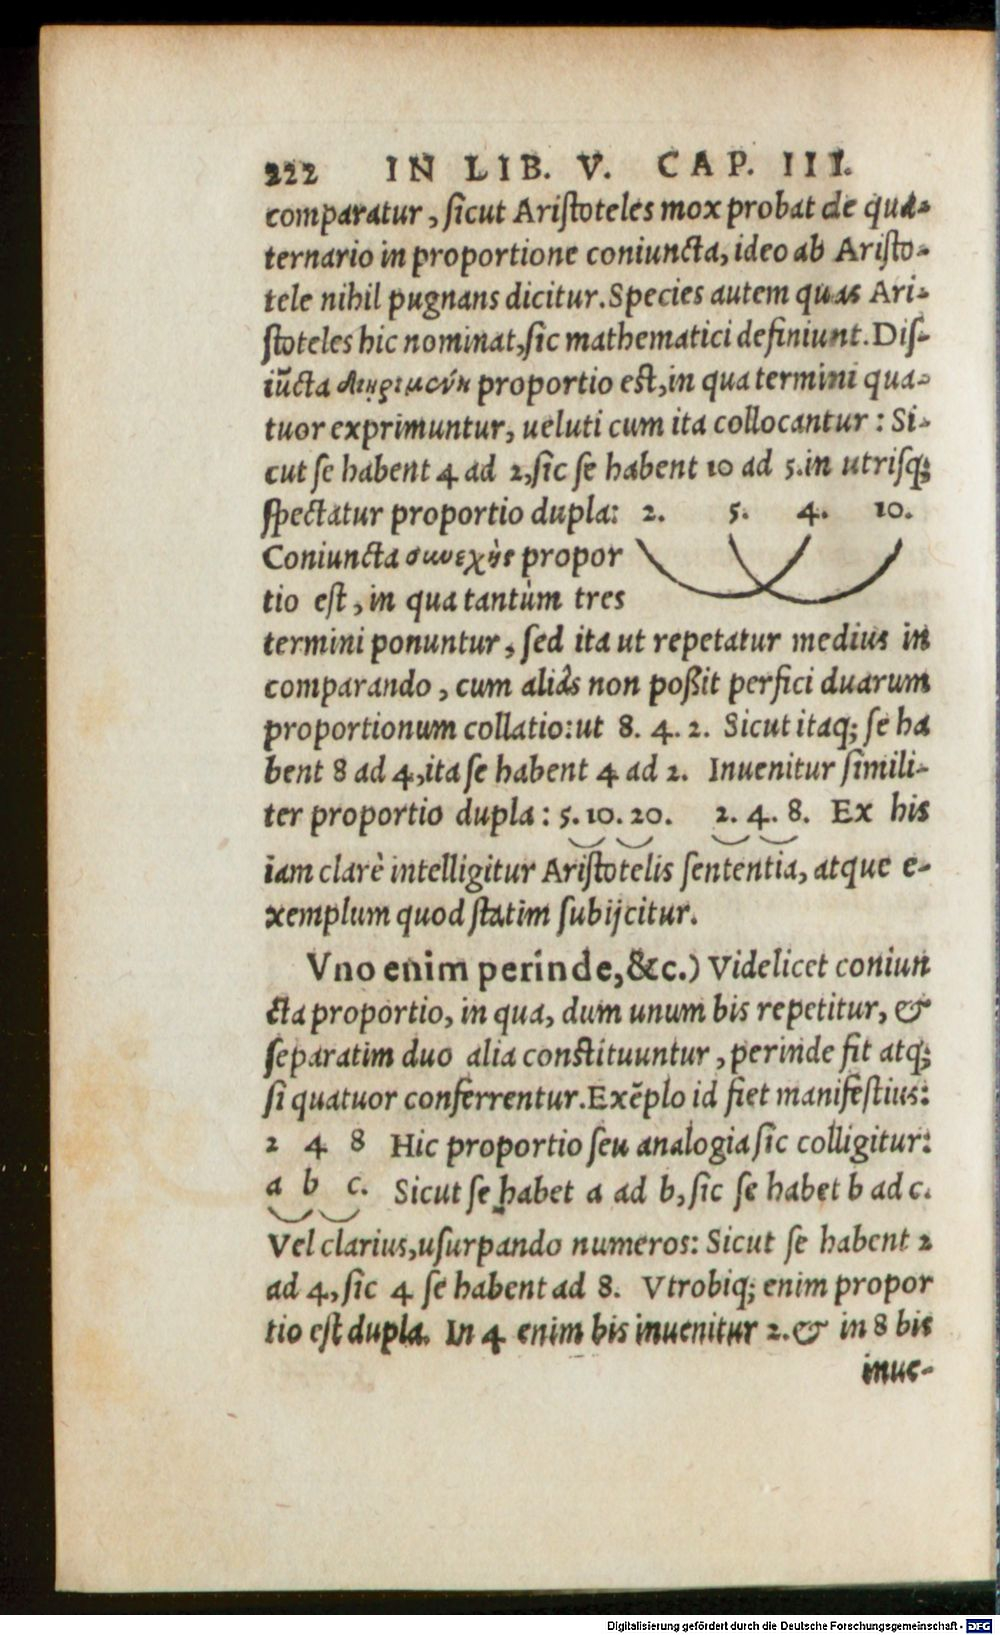 222 IN LIB. V. CAP. III.
comparatur, ſicut Ariſtoteles mox probat de qua-
ternario in proportione coniuncta, ideo ab Ariſto-
tele nihil pugnans dicitur. Species autem quas Ari-
ſtoteles hic nominat, ſic mathematici definiunt. Diſ-
iũcta διῃρημένη proportio est, in qua termini qua-
tuor exprimuntur, ueluti cum ita collocantur: Si-
cut ſe habent 4 ad 2, ſic ſe habent 10 ad 5. in utriſq;
ſpectatur proportio dupla: 2. 5. 4. 10.
Coniuncta συνεχὴς propor
tio eſt, in qua tantùm tres
termini ponuntur, ſed ita ut repetatur medius in
comparando, cum aliâs non poßit perfici duarum
proportionum collatio: ut 8. 4. 2. Sicut itaq; ſe ha
bent 8 ad 4, ita ſe habent 4 ad 2. Inuenitur ſimili-
ter proportio dupla: 5. 10. 20. 2. 4. 8. Ex his
iam clarè intelligitur Ariſtotelis ſententia, atque e-
xemplum quod ſtatim ſubijcitur.
Vno enim perinde, &c.) Videlicet coniun
cta proportio, in qua, dum unum bis repetitur, &
ſeparatim duo alia constituuntur, perinde fit atq;
ſi quatuor conferrentur. Exẽplo id fiet manifeſtius:
2 4 8 Hic proportio ſeu analogia ſic colligitur:
a b c. Sicut ſe habet a ad b, ſic ſe habet b ad c.
Vel clarius, uſurpando numeros: Sicut ſe habent 2
ad 4, ſic 4 ſe habent ad 8. Vtrobiq; enim propor
tio eſt dupla. In 4 enim bis inuenitur 2. & in 8 bis
inue-
Digitalisierung gefördert durch die Deutsche Forschungsgemeinschaft - DFG